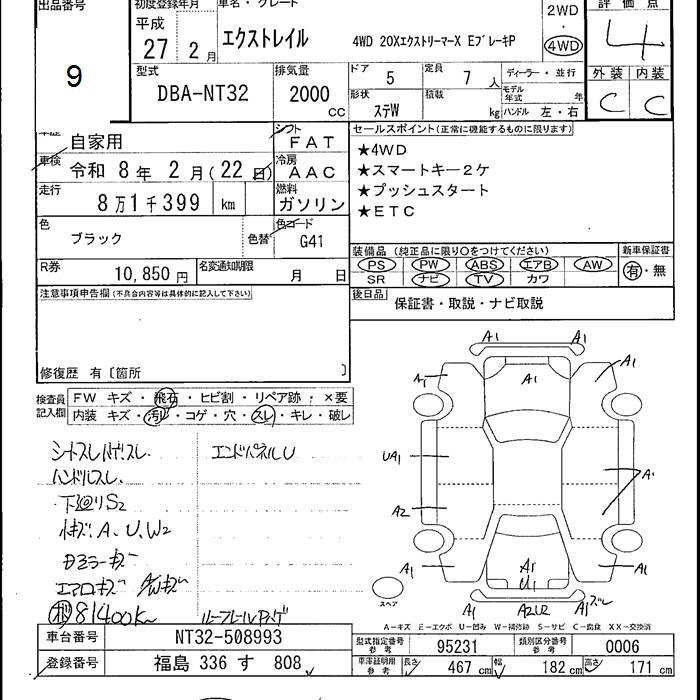 出品番号 初度登録年月 車名・グレード 評価点
平成 2WD
27 2月 エクストレイル 4WD 20XエクストリーマーX EブレーキP ・ 4
4WD
9 型式 排気量 ドア 5 定員 7人 ディーラー・並行 外装 内装
DBA-NT32 2000 CC 形状 ステW 積載 kg モデル年式 年 C C
ハンドル 左・右
自家用 シフト FAT セールスポイント(正常に機能するものに限ります)
車検 令和 8年 2月(22日) 冷房 AAC ★4WD
★スマートキー2ケ
走行 8万1千399 km 燃料 ガソリン ★プッシュスタート
★ETC
色 ブラック 色替 色コード G41
装備品 (純正品に限り○をつけてください) 新車保証書
R券 10,850円 名変通知期限 月 日 PS PW ABS エアB AW 有・無
SR ナビ TV カワ
注意事項申告欄(不具合内容等は具体的に記入して下さい) 後日品 保証書・取説・ナビ取説
修復歴 有〔箇所 〕
検査員記入欄 FW キズ・飛石・ヒビ割・リペア跡・×要
内装 キズ・汚レ・コゲ・穴・スレ・キレ・破レ
シートスレ エンドパネルU
ハンドルスレ
下廻りS2
A、U、W2
ドアミラーキズ
エアロキズ AWキズ
81400k
A1 A1
A1 A1 A1
UA1 A1
A2
A1 A1 A1
U1
A1 A2U2 A1
スペア
A−キズ E−エクボ U−凹み W−補修跡 S−サビ C−腐食 XX−交換済
車台番号 NT32-508993 型式指定番号 参考 95231 類別区分番号 参考 0006
登録番号 福島 336 す 808 車庫証明用 参考 長さ 467 cm 幅 182 cm 高さ 171 cm